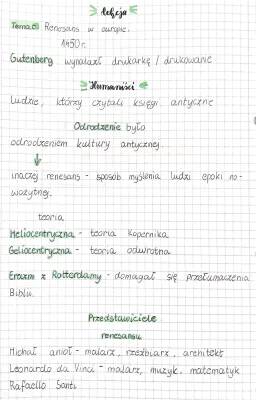 lekcja
Temat: Renesans w europie.
1450r.
Gutenberg wynalazł drukarkę / drukowanie
Humaniści
Ludzie, którzy czytali księgi antyczne
Odrodzenie było
odrodzeniem kultury antycznej.
↓
inaczej renesans - sposób myślenia ludzi epoki no-
wożytnej.
teoria
Heliocentryczna - teoria Kopernika
Geliocentryczna - teoria odwrotna
Erazm z Rotterdamy - domagał się przetłumaczenia
Biblii.
Przedstawiciele
renesansu
Michał anioł - malarz, rzeźbiarz, architekt
Leonardo da Vinci - malarz, muzyk, matematyk
Rafaello Santi.